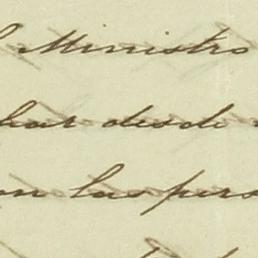 l Ministro
har desde
on las pers